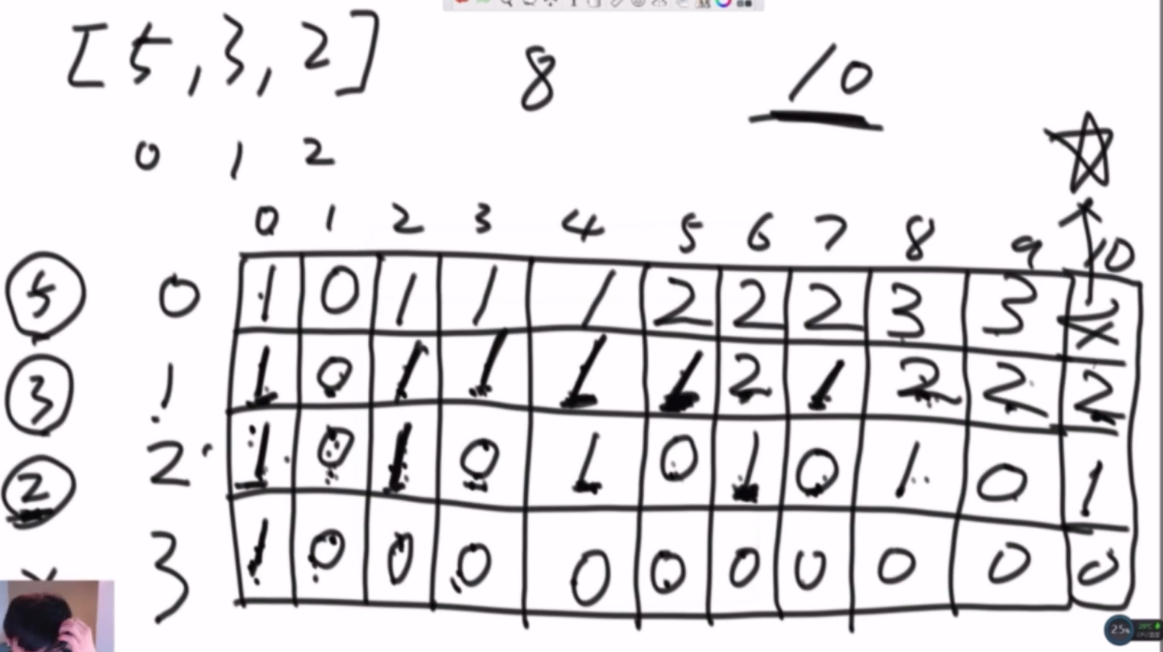 [5,3,2] 8 10
0 1 2
0 1 2 3 4 5 6 7 8 9 10
5 0 1 0 1 1 1 2 2 2 3 3 4
3 1 1 0 1 1 1 1 2 1 2 2 2
2 2 1 0 1 0 1 0 1 0 1 0 1
3 1 0 0 0 0 0 0 0 0 0 0
25%